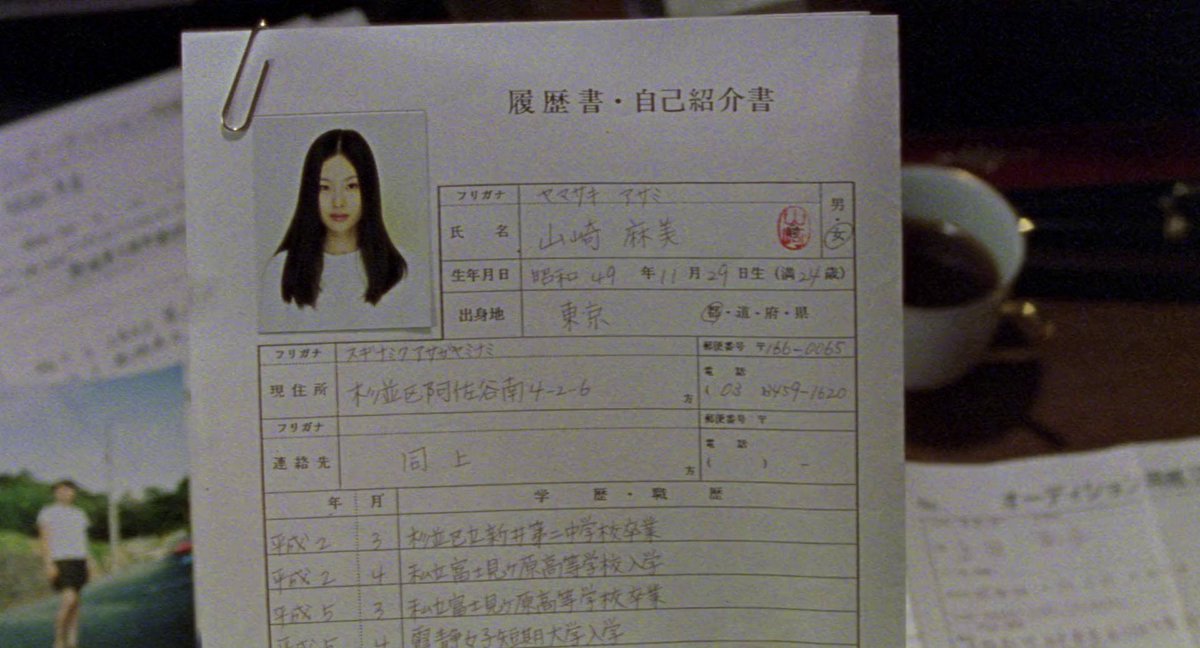 履歴書・自己紹介書
フリガナ ヤマサキ アサミ
氏名 山崎 麻美 男・女
生年月日 昭和 49 年 11 月 29 日生 (満 24 歳)
出身地 東京 都・道・府・県
フリガナ スギナミク アサガヤミナミ 郵便番号 〒166-0065
現住所 杉並区阿佐谷南4-2-6 方 電話 ( 03 )3459-1620
フリガナ 郵便番号 〒
連絡先 同上 方 電話 ( ) -
年 月 学歴・職歴
平成2 3 杉並区立新井第二中学校卒業
平成2 4 私立富士見ヶ原高等学校入学
平成5 3 私立富士見ヶ原高等学校卒業
平成5 4 女子短期大学入学
オーディション